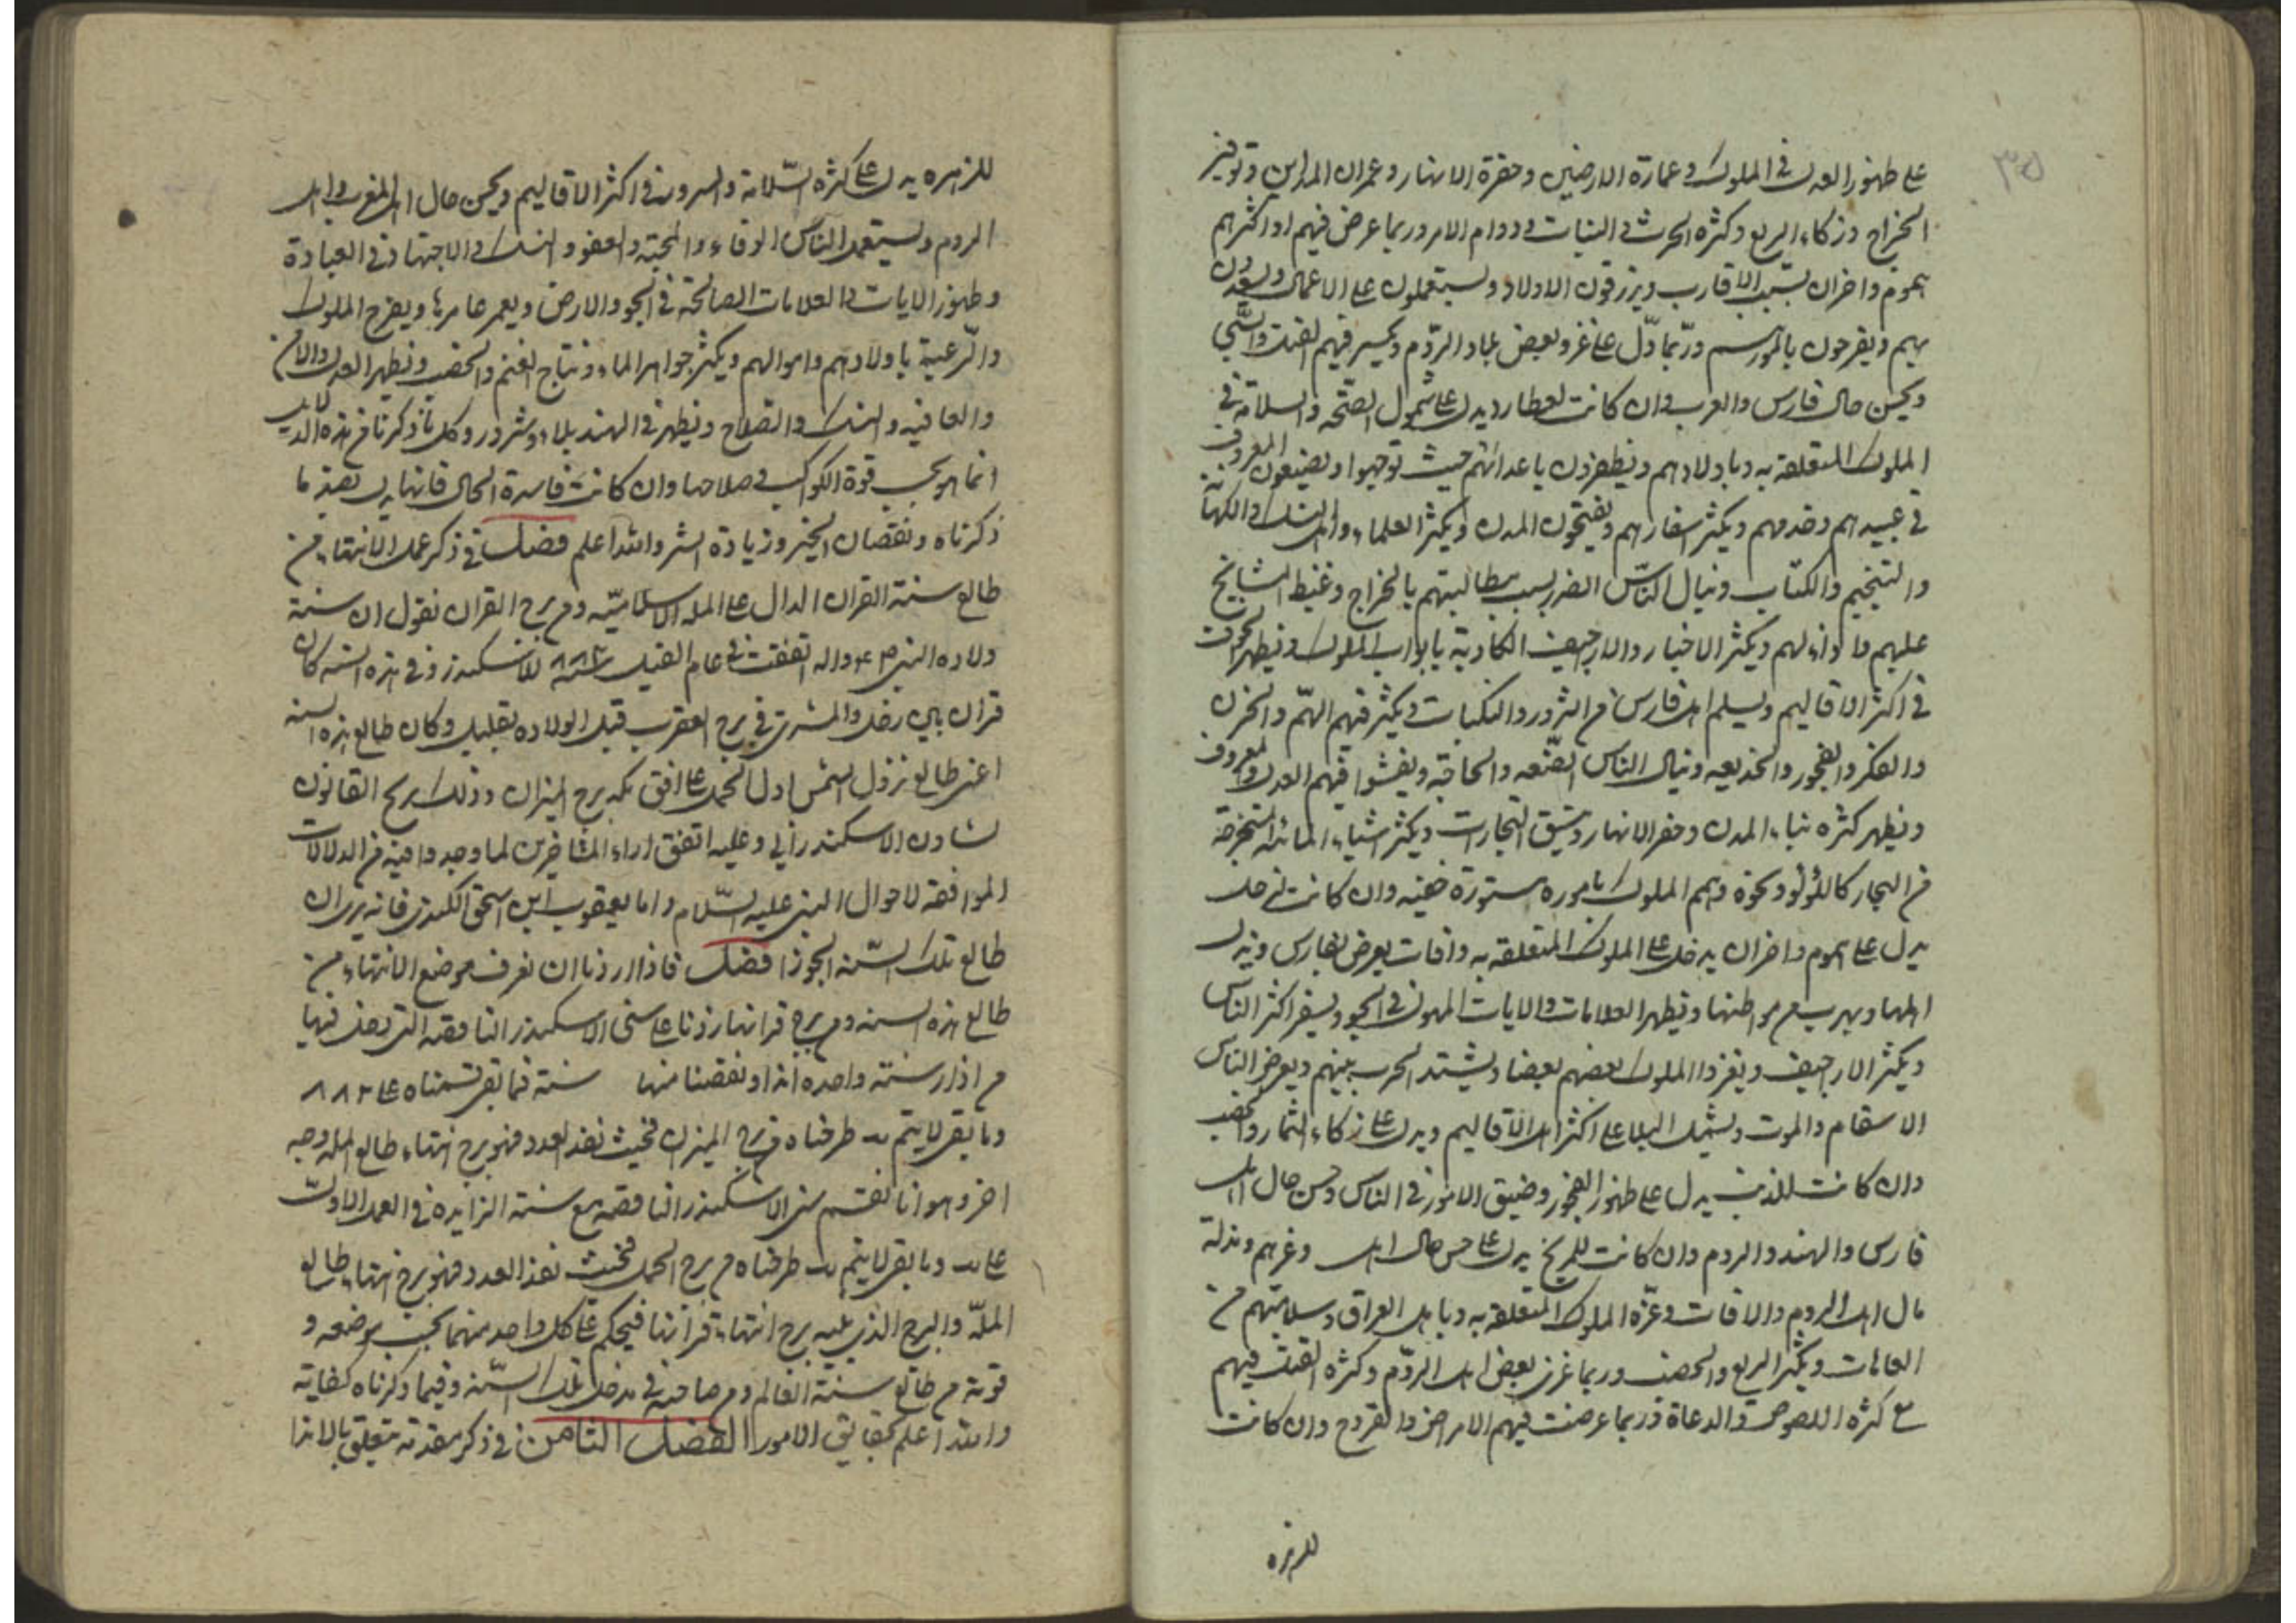 ٣٥
على ظهور العدل في الملوك وعمارة الارضين وحفرة الانهار وعمران المداين وتوفير
الخراج وزكاء الريع وكثرة الحرث والنبات ودوام الامر وربما عرض فيهم او اكثرهم
هموم واحزان بسبب الاقارب ويرزقون الاولاد ويستعملون على الاعمال
بهم ويفرحون وربما دل على غزو بعض بلاد الروم فيهم القتل والسبي
ويحسن حال فارس والعرب وان كانت لعطارد يدل على شمول الصحه والسلامة في
الملوك المتعلقة به وباولادهم ويظفرون باعدائهم حيث توجهوا ويصنعون المعروف
في عبيدهم وخدمهم ويكثر اسفارهم ويفتحون المدن ويكثر العلماء واهل النسك والكهانة
والتنجيم والكتاب وينال الناس الضرر بسبب مطالبتهم بالخراج وغيظ المشايخ
عليهم ويكثر الاخبار والاراجيف الكاذبة بابواب الملوك ويظهر الموت
في اكثر الاقاليم ويسلم اهل فارس من الشرور والنكبات ويكثر فيهم الهم والحزن
والفكر والفجور والخديعه وينال الناس الضيعه والحاجة ويفشوا فيهم العدل والمعروف
ويظهر كثره بناء المدن وحفر الانهار التجارات ويكثر اشياء المستخرجة
من البحار كاللؤلؤ ونحوه ويهم الملوك بامور مستورة خفيه وان كانت لزحل
يدل على هموم واحزان يدخل على الملوك المتعلقة به وافات يعرض لفارس ويدل
اهلها ويهرب من مواطنها ويظهر العلامات والايات المهولة في الجو ويسفر اكثر الناس
ويكثر الاراجيف ويغزوا الملوك بعضهم بعضا ويشتد الحرب بينهم ويعرض للناس
الاسقام والموت ويشمل البلاء على اكثر اهل الاقاليم ويدل على زكاء الثمار والخصب
وان كانت للذنب يدل على ظهور الفجور وضيق الامور في الناس وحسن حال اهل
فارس والهند والروم وان كانت للمريخ يدل على حسن حال اهل وغزهم ومذلة
مال اهل الروم والافات وعزه الملوك المتعلقه به وباهل العراق وسلامتهم من
العاهات ويكثر الريع والخصب وربما غزى بعض اهل الروم وكثره القتل فيهم
مع كثره اللصوص والدعاة وربما عرضت فيهم الامراض والقروح وان كانت
للزهره
للزهره يدل على كثره السلامة والسرور في اكثر الاقاليم ويحسن حال اهل المغرب واهل
الروم ويستعمل الناس الوفاء والمحبة والعفو والنسك والاجتهاد في العبادة
وظهور الايات والعلامات الصالحة في الجو والارض ويعمر عامرها ويفرح الملوك
والرعية باولادهم واموالهم ويكثر جواهر الماء ونتاج الغنم والخصب ويظهر العدل والامن
والعافيه والنسك والصلاح ويظهر في الهند بلاء وشرور وكل ما ذكرنا من هذه الدلايل
انما هو بحسب قوة الكواكب وصلاحها وان كانت فاسدة الحال فانها يدل بضد ما
ذكرناه ونقصان الخير وزيادة الشر والله اعلم فصل في ذكر عمل الانتهاء من
طالع سنة القران الدال على المله الاسلاميه ومن برج القران نقول ان سنة
ولاده النبي ص ع واله اتفقت في عام الفيل سنة ٨٨٢ للاسكندر وفي هذه السنه كان
قران بين زحل والمشتري في برج العقرب قبل الولاده بقليل وكان طالع هذه السنه
اعني طالع نزول الشمس اول الحمل على افق مكه برج الميزان وذلك بزيج القانون
لثاون الاسكندراني وعليه اتفق اراء المتاخرين لما وجدوا فيه من الدلالات
الموافقة لاحوال النبي عليه السلام واما يعقوب ابن اسحق الكندي فانه يرى ان
طالع تلك السنه الجوزا فصل فاذا اردنا ان نعرف موضع الانتهاء من
طالع هذه السنه ومن برج قرانها زدنا على سني الاسكندر الناقصه التي دخل فيها
من اذار سنة واحده ابدا ونقصنا منها سنة فما بقي قسمناه على ٨٨٢
وما بقي لا يتم يب طرحناه من برج الميزان فحيث نفذ العدد فهو برج انتهاء طالع المله وجه
اخر وهو انا نقسم سني الاسكندر الناقصه مع سنة الزايده في العمل الاول
على يب وما بقي لا يتم يب طرحناه من برج الحمل فحيث نفذ العدد فهو برج انتهاء طالع
الملة والبرج الذي يليه برج انتهاء قرانها فيحكم على كل واحد منهما بحسب موضعه و
قوته من طالع سنة العالم ومن صاحبه في مدخل تلك السنه وفيما ذكرناه كفاية
والله اعلم بحقايق الامور الفصل الثامن في ذكر مقدمه متعلق بالانذا